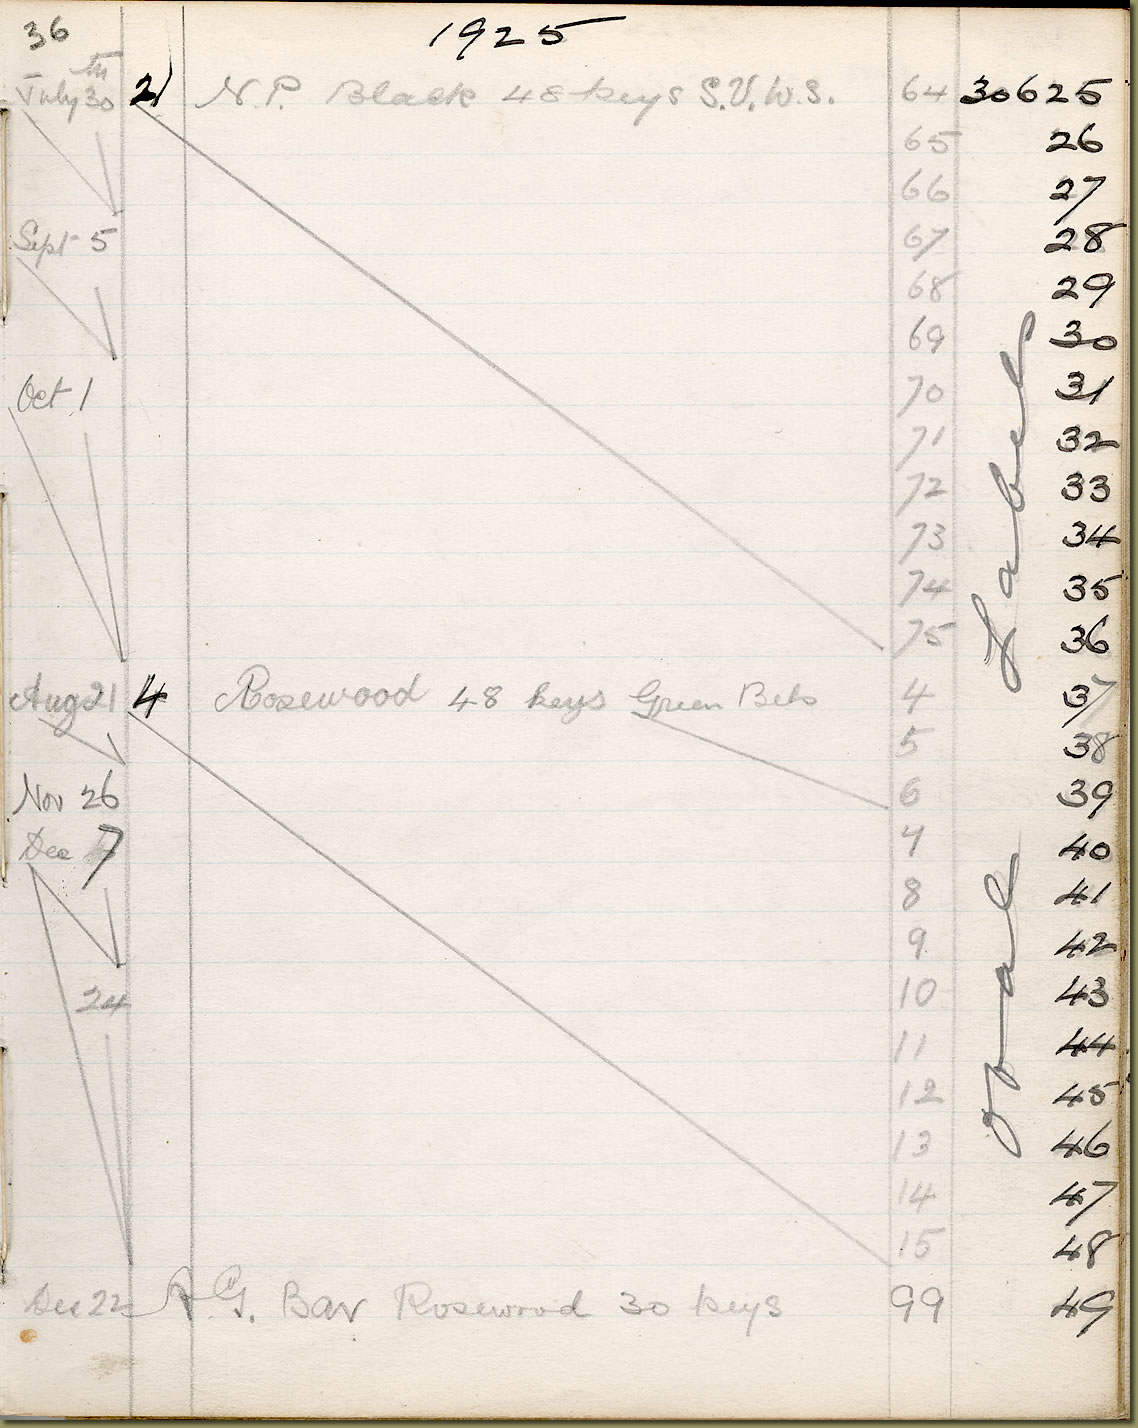 36 1925
July 30th 21 N.P. Black 48 keys S.V.W.S. 64 30625
65 26
66 27
Sept 5 67 28
68 29
69 30
Oct 1 70 31
71 32
72 33
73 34
74 35
75 36
Aug 21 4 Rosewood 48 keys Green Bels 4 37
5 38
Nov 26 6 39
Dec 7 7 40
8 41
9 42
24 10 43
11 44
12 45
13 46
14 47
15 48
Dec 22 A G. Bar Rosewood 30 keys 99 49
Oval Labels